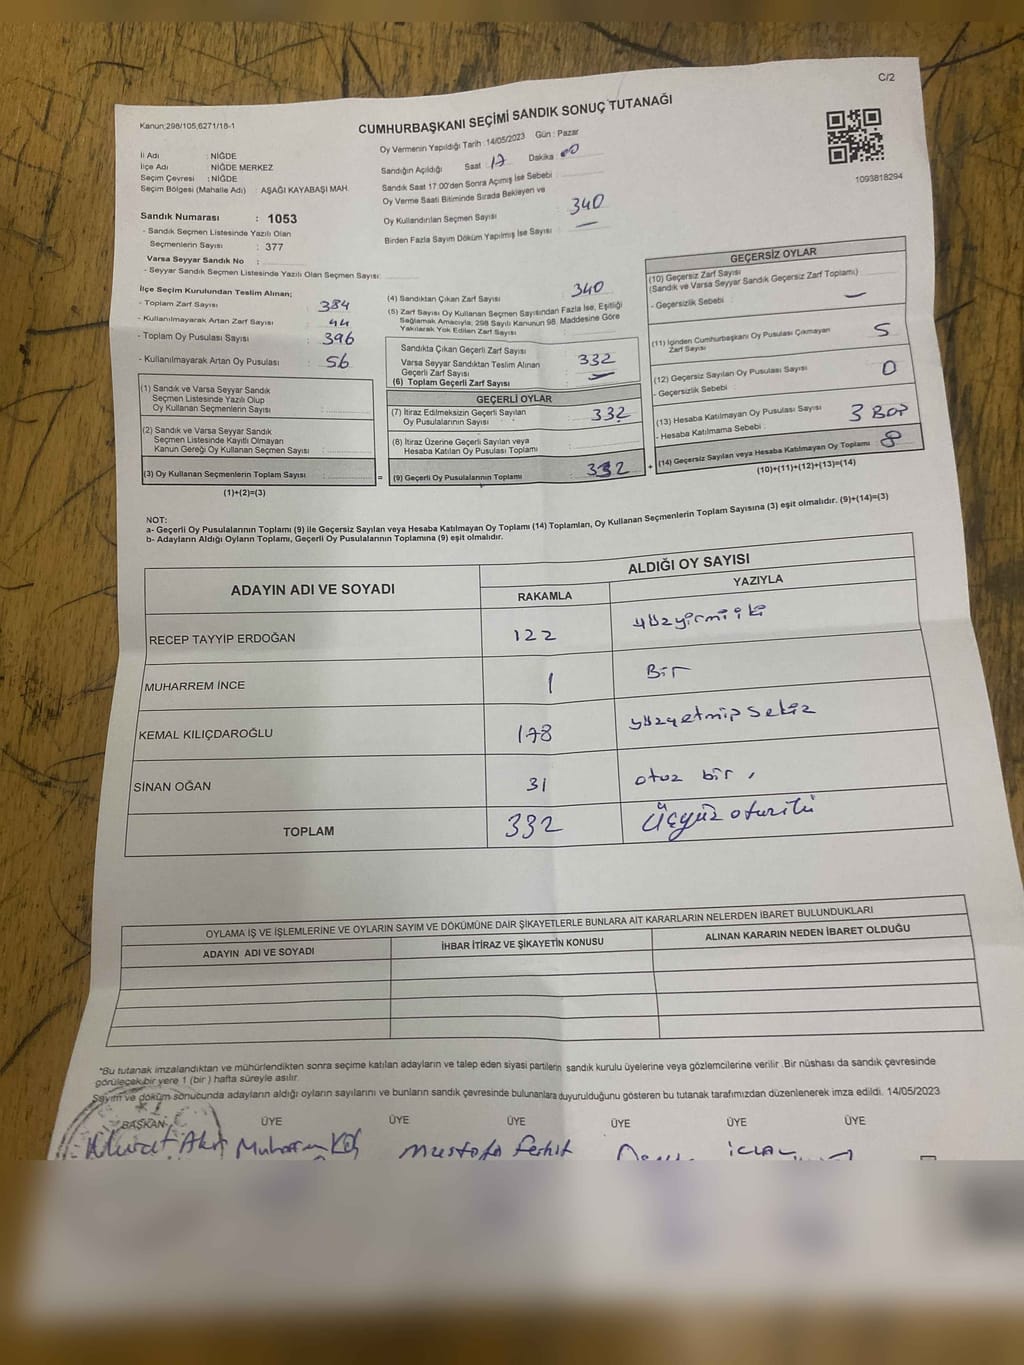 C/2
Kanun;298/105,6271/18-1
CUMHURBAŞKANI SEÇİMİ SANDIK SONUÇ TUTANAĞI
Oy Vermenin Yapıldığı Tarih :14/05/2023 Gün : Pazar
İl Adı : NİĞDE
İlçe Adı : NİĞDE MERKEZ
Seçim Çevresi : NİĞDE
Seçim Bölgesi (Mahalle Adı) : AŞAĞI KAYABAŞI MAH.
Sandığın Açıldığı Saat 17 Dakika 00
Sandık Saat 17:00'den Sonra Açımış İse Sebebi :
Oy Verme Saati Bitiminde Sırada Bekleyen ve
Oy Kullandırılan Seçmen Sayısı 340
Birden Fazla Sayım Döküm Yapılmış İse Sayısı : —
1093818294
Sandık Numarası : 1053
- Sandık Seçmen Listesinde Yazılı Olan
Seçmenlerin Sayısı : 377
Varsa Seyyar Sandık No :
- Seyyar Sandık Seçmen Listesinde Yazılı Olan Seçmen Sayısı:
İlçe Seçim Kurulundan Teslim Alınan;
- Toplam Zarf Sayısı : 384
- Kullanılmayarak Artan Zarf Sayısı : 44
- Toplam Oy Pusulası Sayısı : 396
- Kullanılmayarak Artan Oy Pusulası : 56
(1) Sandık ve Varsa Seyyar Sandık
Seçmen Listesinde Yazılı Olup
Oy Kullanan Seçmenlerin Sayısı :
(2) Sandık ve Varsa Seyyar Sandık
Seçmen Listesinde Kayıtlı Olmayan
Kanun Gereği Oy Kullanan Seçmen Sayısı :
(3) Oy Kullanan Seçmenlerin Toplam Sayısı :
(1)+(2)=(3)
(4) Sandıktan Çıkan Zarf Sayısı : 340
(5) Zarf Sayısı Oy Kullanan Seçmen Sayısından Fazla İse, Eşitliği
Sağlamak Amacıyla; 298 Sayılı Kanunun 98. Maddesine Göre
Yakılarak Yok Edilen Zarf Sayısı :
Sandıkta Çıkan Geçerli Zarf Sayısı : 332
Varsa Seyyar Sandıktan Teslim Alınan
Geçerli Zarf Sayısı : —
(6) Toplam Geçerli Zarf Sayısı
GEÇERLİ OYLAR
(7) İtiraz Edilmeksizin Geçerli Sayılan
Oy Pusulalarının Sayısı : 332
(8) İtiraz Üzerine Geçerli Sayılan veya
Hesaba Katılan Oy Pusulası Toplamı :
= (9) Geçerli Oy Pusulalarının Toplamı : 332
GEÇERSİZ OYLAR
(10) Geçersiz Zarf Sayısı
(Sandık ve Varsa Seyyar Sandık Geçersiz Zarf Toplamı)
- Geçersizlik Sebebi : —
(11) İçinden Cumhurbaşkanı Oy Pusulası Çıkmayan
Zarf Sayısı : 5
(12) Geçersiz Sayılan Oy Pusulası Sayısı : 0
- Geçersizlik Sebebi :
(13) Hesaba Katılmayan Oy Pusulası Sayısı : 3 Boş
- Hesaba Katılmama Sebebi :
+ (14) Geçersiz Sayılan veya Hesaba Katılmayan Oy Toplamı : 8
(10)+(11)+(12)+(13)=(14)
NOT:
a- Geçerli Oy Pusulalarının Toplamı (9) ile Geçersiz Sayılan veya Hesaba Katılmayan Oy Toplamı (14) Toplamları, Oy Kullanan Seçmenlerin Toplam Sayısına (3) eşit olmalıdır. (9)+(14)=(3)
b- Adayların Aldığı Oyların Toplamı, Geçerli Oy Pusulalarının Toplamına (9) eşit olmalıdır.
ADAYIN ADI VE SOYADI
ALDIĞI OY SAYISI
RAKAMLA YAZIYLA
RECEP TAYYİP ERDOĞAN 122 yüzyirmi iki
MUHARREM İNCE 1 Bir
KEMAL KILIÇDAROĞLU 178 yüzyetmiş sekiz
SİNAN OĞAN 31 otuz bir
TOPLAM 332 Üçyüz
OYLAMA İŞ VE İŞLEMLERİNE VE OYLARIN SAYIM VE DÖKÜMÜNE DAİR ŞİKAYETLERLE BUNLARA AİT KARARLARIN NELERDEN İBARET BULUNDUKLARI
ADAYIN ADI VE SOYADI İHBAR İTİRAZ VE ŞİKAYETİN KONUSU ALINAN KARARIN NEDEN İBARET OLDUĞU
*Bu tutanak imzalandıktan ve mühürlendikten sonra seçime katılan adayların ve talep eden siyasi partilerin sandık kurulu üyelerine veya gözlemcilerine verilir. Bir nüshası da sandık çevresinde
görülecek bir yere 1 (bir ) hafta süreyle asılır.
Sayım ve döküm sonucunda adayların aldığı oyların sayılarını ve bunların sandık çevresinde bulunanlara duyurulduğunu gösteren bu tutanak tarafımızdan düzenlenerek imza edildi. 14/05/2023
BAŞKAN ÜYE ÜYE ÜYE ÜYE ÜYE ÜYE
Murat Muharrem Koç Mustafa Ferhit